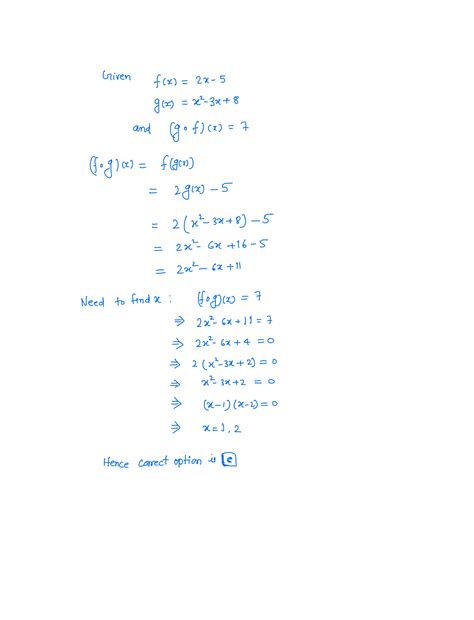 Given f(x) = 2x - 5
g(x) = x² - 3x + 8
and (g∘f)(x) = 7
(f∘g)(x) = f(g(x))
= 2g(x) - 5
= 2(x² - 3x + 8) - 5
= 2x² - 6x + 16 - 5
= 2x² - 6x + 11
Need to find x : (f∘g)(x) = 7
⇒ 2x² - 6x + 11 = 7
⇒ 2x² - 6x + 4 = 0
⇒ 2(x² - 3x + 2) = 0
⇒ x² - 3x + 2 = 0
⇒ (x-1)(x-2) = 0
⇒ x = 1, 2
Hence correct option is c